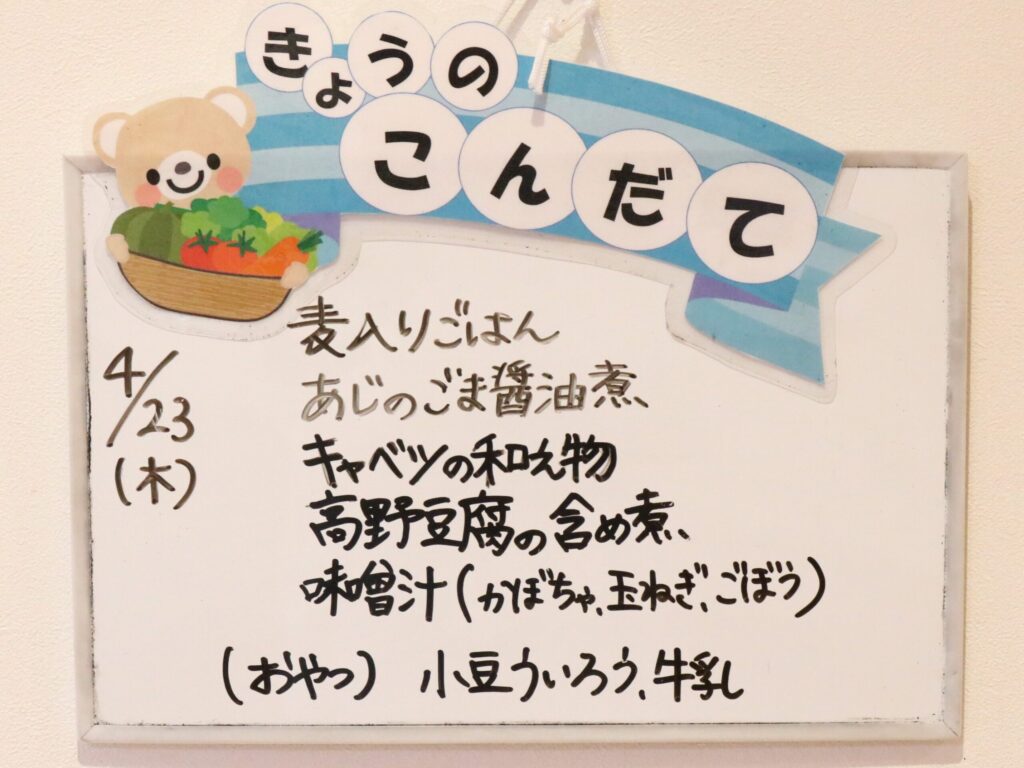 きょうの
こんだて
4/23
(木)
麦入りごはん
あじのごま醤油煮
キャベツの和え物
高野豆腐の含め煮
味噌汁(かぼちゃ、玉ねぎ、ごぼう)
(おやつ) 小豆ういろう、牛乳